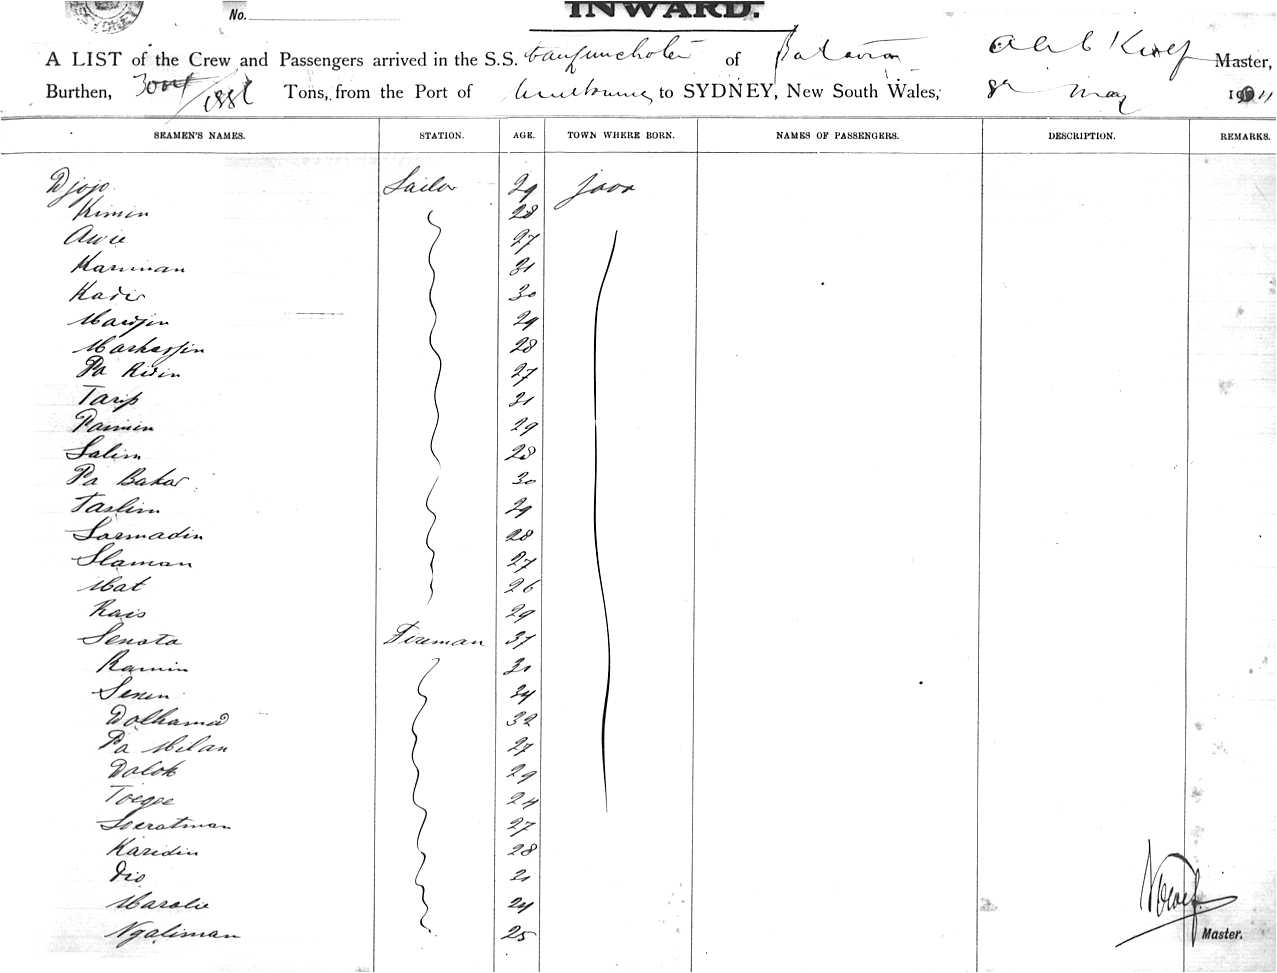 No.
INWARD.
A LIST of the Crew and Passengers arrived in the S.S. van of Batavia Master,
Burthen, Tons, from the Port of Melbourne to SYDNEY, New South Wales, 8 May 19
SEAMEN'S NAMES. STATION. AGE. TOWN WHERE BORN. NAMES OF PASSENGERS. DESCRIPTION. REMARKS.
Djojo Sailor 29 Java
Kimin 28
Awie 27
Kariman 31
Kadir 30
Mardjin 29
28
Pa Ridin 27
Tarip 31
Paimin 29
Salim 28
Pa Bakar 30
Taslim 29
Sarmadin 28
Slaman 27
Mat 26
Rais 29
Senota Fireman 37
Ramin 31
Senen 34
Dolhamad 32
Pa Milan 27
Dalok 29
Toegoe 24
Soeratman 27
Karidin 28
Dio 21
Maralie 24
Ngaliman 25
Master.